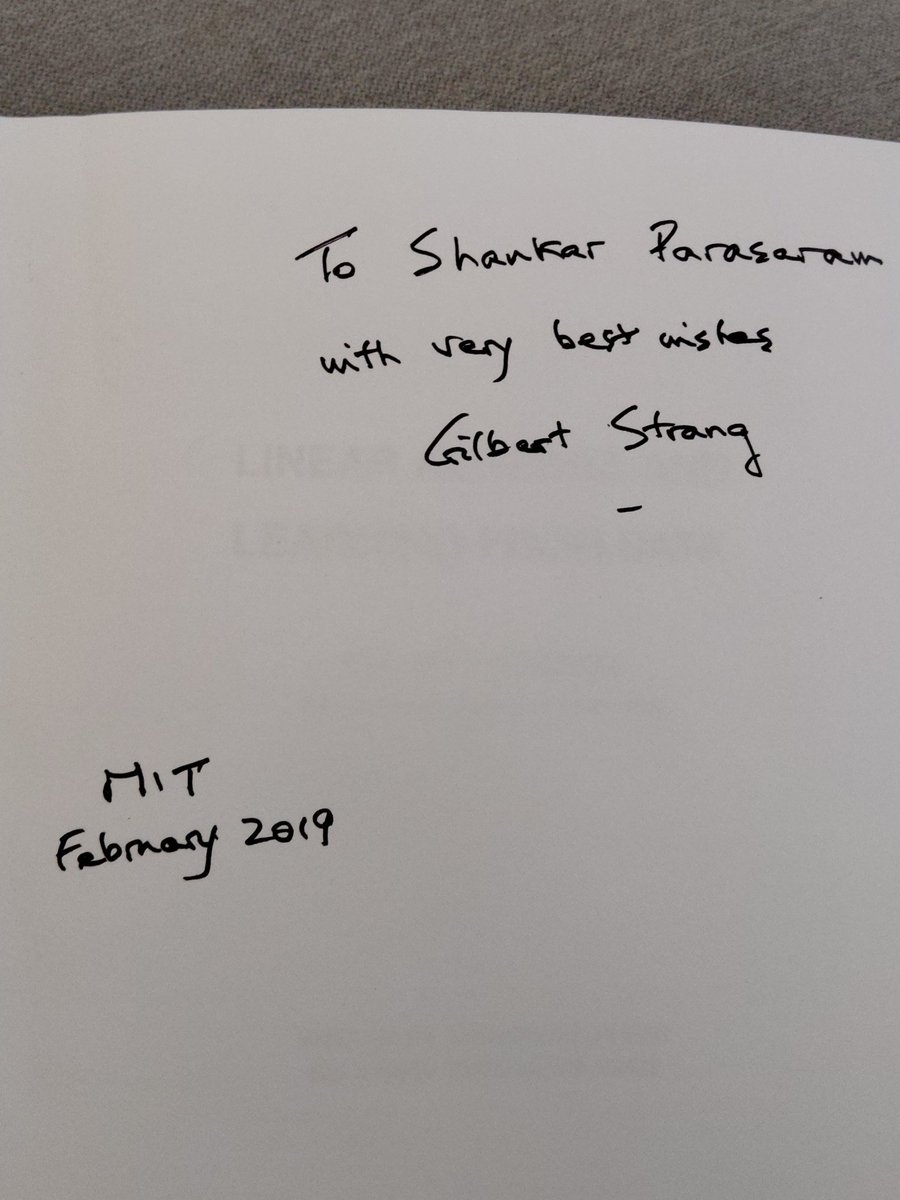 To Shankar Parasaram
with very best wishes
Gilbert Strang
MIT
February 2019